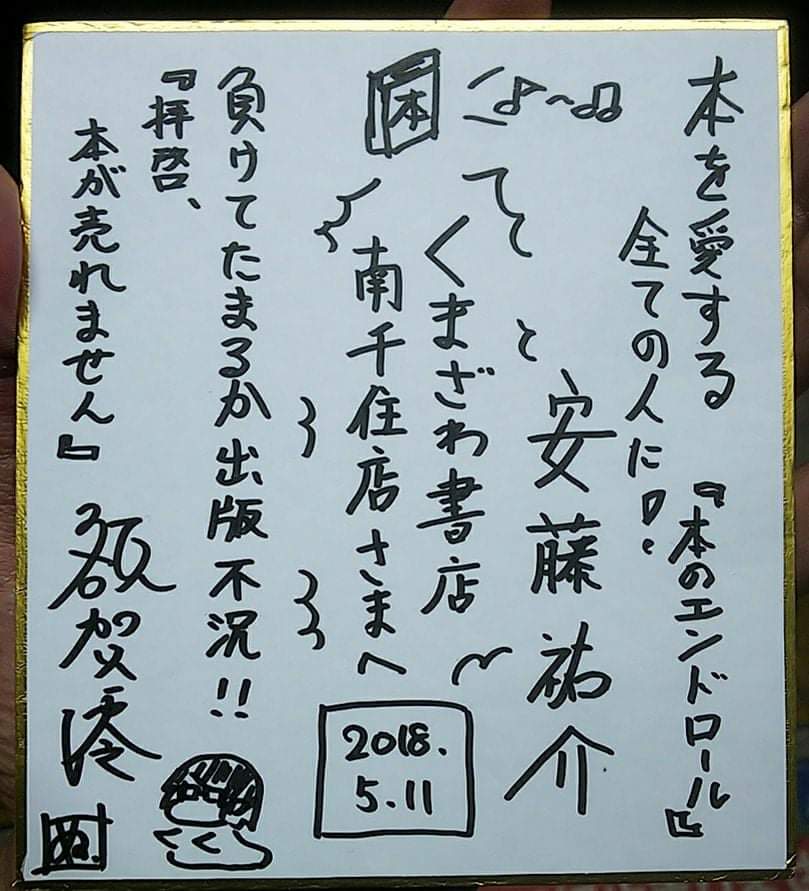 本を愛する
全ての人に!
『本のエンドロール』
安藤祐介
本
くまざわ書店
南千住店さまへ
2018.
5.11
負けてたまるか出版不況!!
『拝啓、
本が売れません』
額賀澪
ぬ